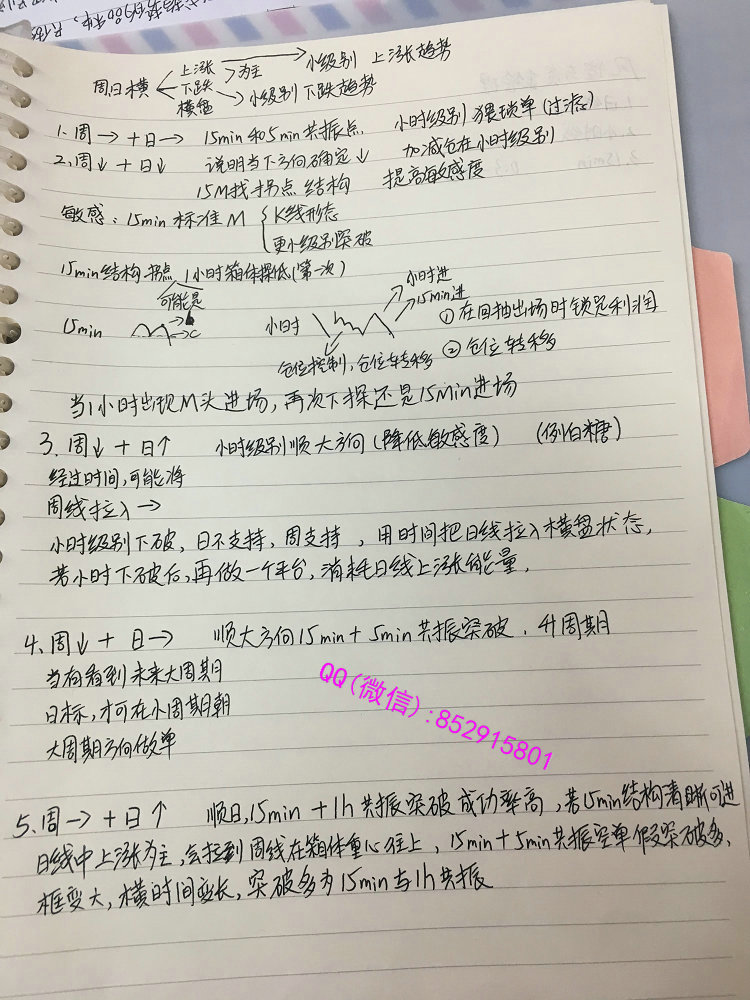 周日横 上涨 下跌 横盘 为主 小级别 上涨趋势
小级别 下跌趋势
1. 周→+日→ 15min和5min共振点. 小时级别 猥琐单(过滤)
2. 周↓+日↓ 说明当下方向确定↓ 加减仓在小时级别
15M找拐点 结构 提高敏感度
敏感: 15min 标准M { K线形态
更小级别突破
15min结构拐点 1小时箱体探低(第一次)
可能是
小时进
15min进
15min C 小时 ① 在回抽出场时锁足利润
仓位控制, 仓位转移 ② 仓位转移
当1小时出现M头进场, 再次下探还是15Min进场
3. 周↓+日↑ 小时级别顺大方向(降低敏感度) (例白糖)
经过时间,可能将
周线拉入→
小时级别下破, 日不支持, 周支持, 用时间把日线拉入横盘状态,
若小时下破后, 再做一个平台, 消耗日线上涨能量.
4. 周↓+日→ 顺大方向15min+5min共振突破. 升周期
当有看到未来大周期
目标, 才可在小周期朝
大周期方向做单
QQ(微信):852915801
5. 周→+日↑ 顺日,15min+1h共振突破成功率高, 若15min结构清晰可进
日线中上涨为主, 会拉到周线在箱体重心往上, 15min+5min共振空单假突破多.
框变大, 横时间变长, 突破多为15min与1h共振